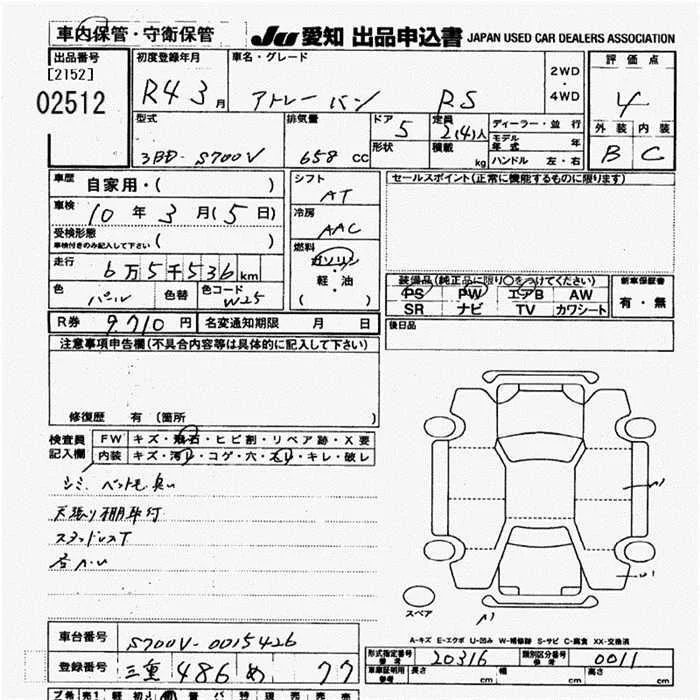 車内保管・守衛保管
JU 愛知 出品申込書 JAPAN USED CAR DEALERS ASSOCIATION
出品番号
[2152]
02512
初度登録年月
R4 3月
車名・グレード
アトレーバン RS
2WD
・
4WD
評価点
4
外装 内装
B C
型式
3BD-S700V
排気量
658 CC
ドア
5
形状
定員
2(4)人
積載 kg
ディーラー・並行
モデル年式 年
ハンドル 左・右
車歴
自家用・( )
車検
10年3月(5日)
受検形態
車検付きのみ記入して下さい ( )
走行
6万5千536km
色
パール
色替
色コード
W25
シフト
AT
冷房
AAC
燃料
ガソリン
軽・油
( )
セールスポイント(正常に機能するものに限ります)
装備品(純正品に限り○をつけてください)
PS PW エアB AW
SR ナビ TV カワシート
新車保証書
有・無
R券 9,710円 名変通知期限 月 日
後日品
注意事項申告欄(不具合内容等は具体的に記入して下さい)
修復歴 有(箇所 )
検査員記入欄
FW キズ・飛石・ヒビ割・リペア跡・X要
内装 キズ・汚レ・コゲ・穴・スレ・キレ・破レ
シミ ペット毛 臭い
天張り棚取付
スタッドレスT
スペア
A-キズ E-エクボ U-凹み W-補修跡 S-サビ C-腐食 XX-交換済
車台番号 S700V-0015426
登録番号 三重 486 め 77
形式指定番号 参考 20316
類別区分番号 参考 0011
車庫証明用 参考 長さ cm 幅 cm 高さ cm